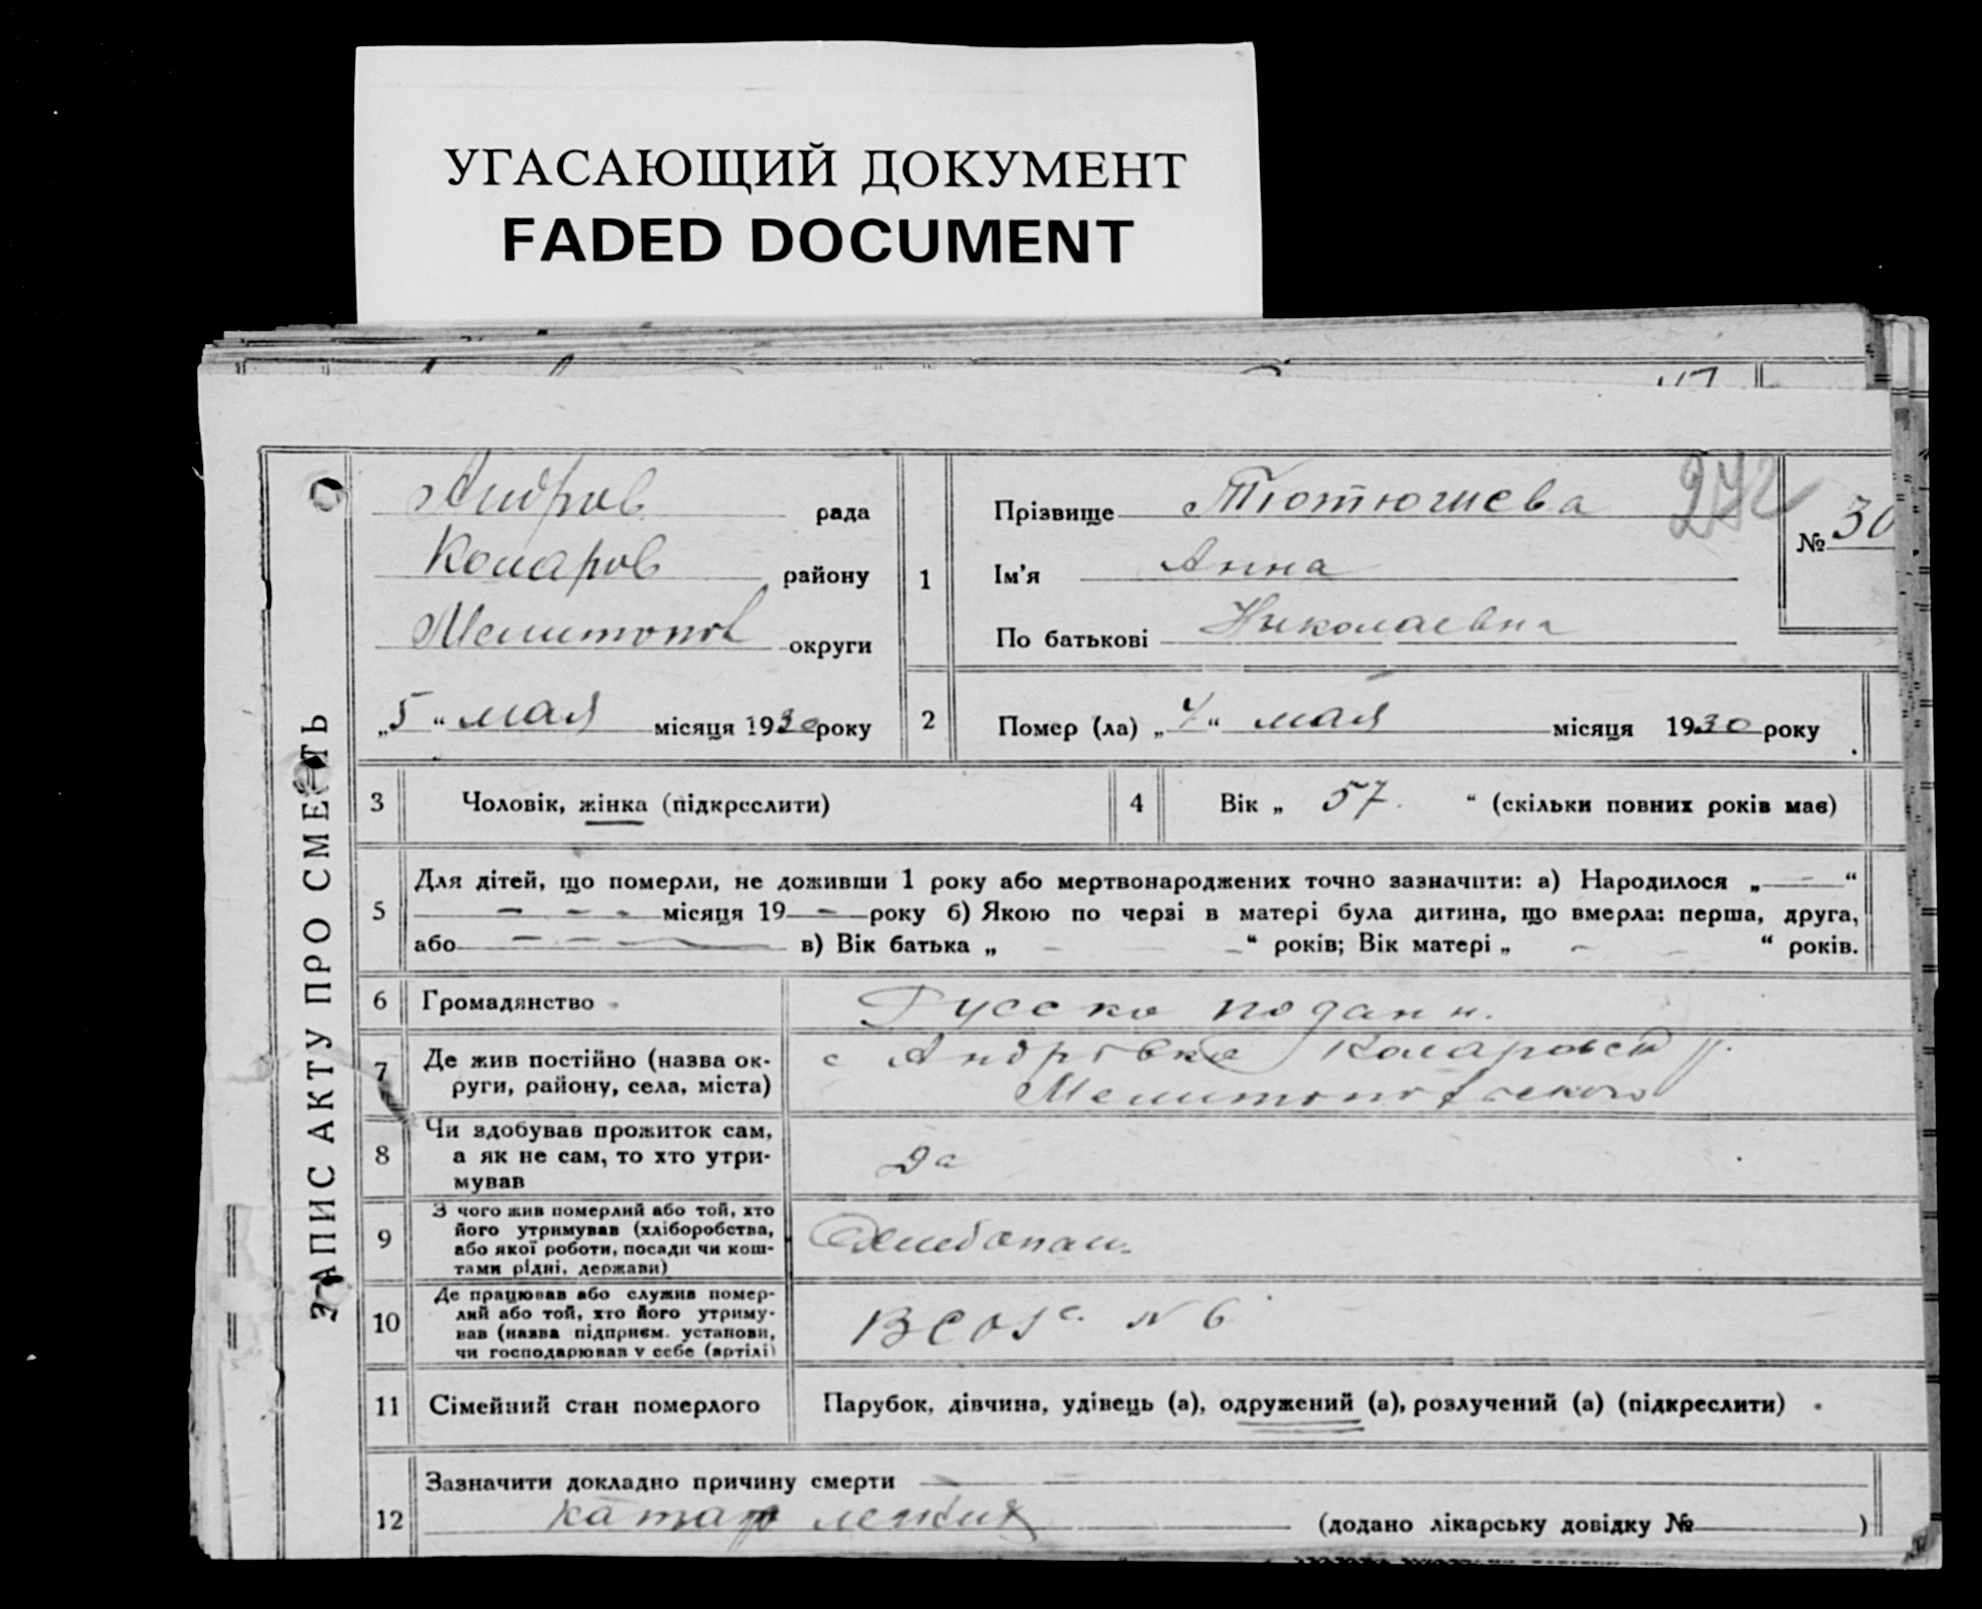 УГАСАЮЩИЙ ДОКУМЕНТ
FADED DOCUMENT
ЗАПИС АКТУ ПРО СМЕРТЬ
Андров рада
Коларов району
Мелитопол округи
„5“ мая місяця 1930 року
1
Прізвище Тютюгиева
272
№ 30
Ім’я Анна
По батькові Николаевна
2
Помер (ла) „4“ мая місяця 1930 року
3 Чоловік, жінка (підкреслити)
4 Вік „ 57. “ (скільки повних років має)
5
Для дітей, що померли, не доживши 1 року або мертвонароджених точно зазначити: а) Народилося „ — “
— — — місяця 19 — року б) Якою по черзі в матері була дитина, що вмерла: перша, друга,
або — — — в) Вік батька „ — — “ років; Вік матері „ — — “ років.
6 Громадянство Русско подан н.
7 Де жив постійно (назва ок-
руги, району, села, міста)
с Андровка Коларовск р.
Мелитопольского
8 Чи здобував прожиток сам,
а як не сам, то хто утри-
мував
да
9 З чого жив померлий або той, хто
його утримував (хліборобства,
або якої роботи, посади чи кош-
тами рідні, держави)
10 Де працював або служив помер-
лий або той, хто його утриму-
вав (назва підприєм. установи,
чи господарював у себе (артілі)
N 6
11 Сімейний стан померлого Парубок, дівчина, удівець (а), одружений (а), розлучений (а) (підкреслити)
12 Зазначити докладно причину смерти
катар легких (додано лікарську довідку № )